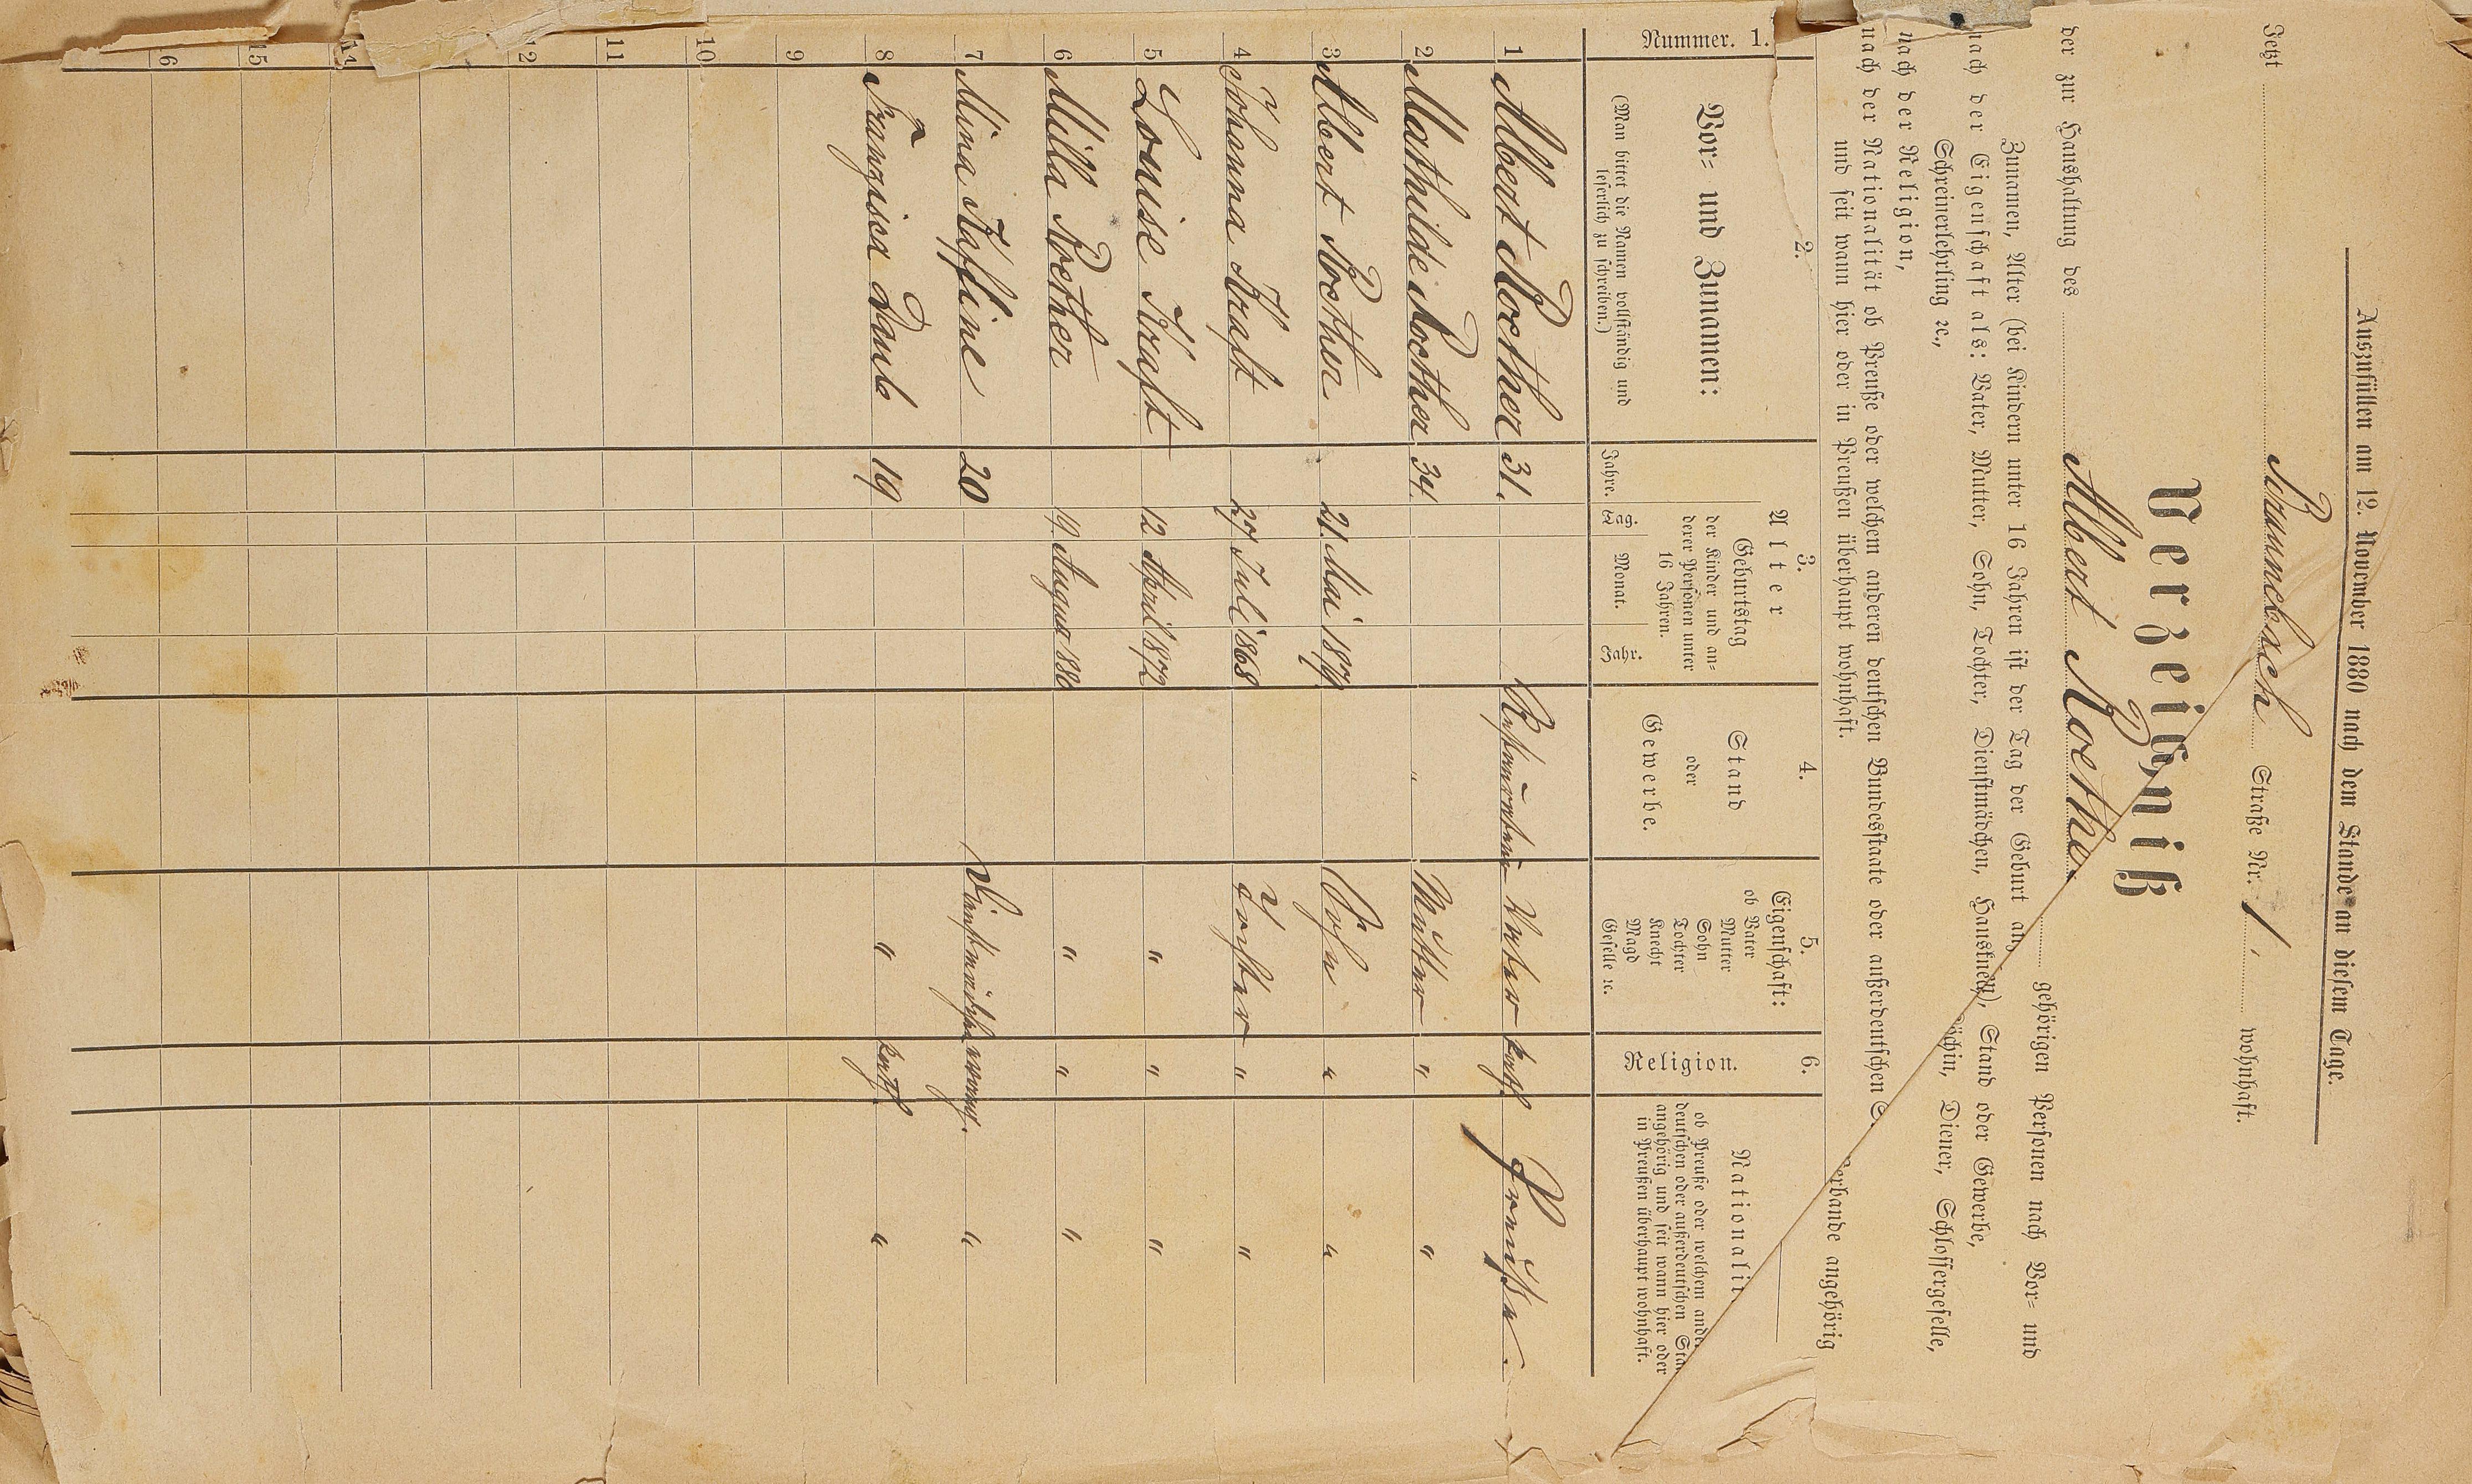 Auszufüllen am 12. November 1880 nach dem Stande an diesem Tage.
Jetzt Straße Nr. 1. wohnhaft.
Verzeichniß
der zur Haushaltung des Albert Roether gehörigen Personen nach Vor= und
Zunamen, Alter (bei Kindern unter 16 Jahren ist der Tag der Geburt
nach der Eigenschaft als: Vater, Mutter, Sohn, Tochter, Dienstmädchen, Hausknecht, Stand oder Gewerbe,
Schreinerlehrling ꝛc., Diener, Schlossergeselle,
nach der Religion,
nach der Nationalität ob Preuße oder welchem anderen deutschen Bundesstaate oder außerdeutschen angehörig
und seit wann hier oder in Preußen überhaupt wohnhaft.
Nummer. 1.
2.
Vor= und Zunamen:
(Man bittet die Namen vollständig und
leserlich zu schreiben.)
3.
Alter
Jahre.
Geburtstag
der Kinder und an=
derer Personen unter
16 Jahren.
Tag. Monat. Jahr.
4.
Stand
oder
Gewerbe.
5.
Eigenschaft:
ob Vater
Mutter
Sohn
Tochter
Knecht
Magd
Geselle ꝛc.
6.
Religion.
ob Preuße oder welchem
deutschen oder außerdeutschen
angehörig und seit wann hier oder
in Preußen überhaupt wohnhaft.
1 Albert Roether 31. Vater kath. Preußen.
2 Mathilde Roether 34. " Mutter " "
3 Albert Roether 21. Mai 1879 Sohn " "
4 Johanna Kraft 27 Juli 1868 Tochter " "
5 Louise Kraft 12 April 1872 " " "
6 Milla Roether 19 August 1880 " " "
7 Mina Kafline 20 Dienstmädchen evang. "
8 Franzisca Daub 19 " kath. "
9
10
11
12
14
15
16